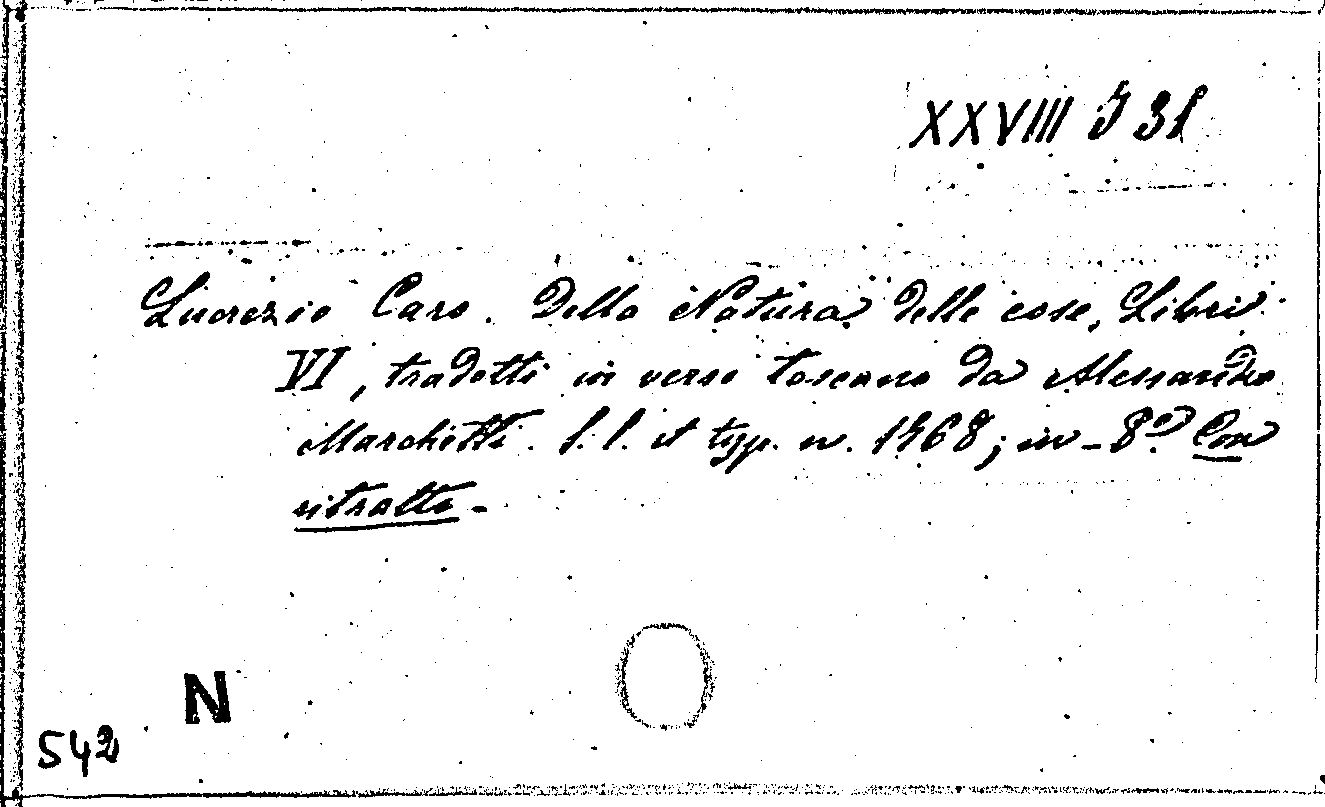 XXVIII J 31
Lucrezio Caro. Della Natura delle cose, Libri
VI, tradotti in verso toscano da Alessandro
Marchetti. S. l. et typ. n. 1768; in-8º. Con
ritratto-
N
542